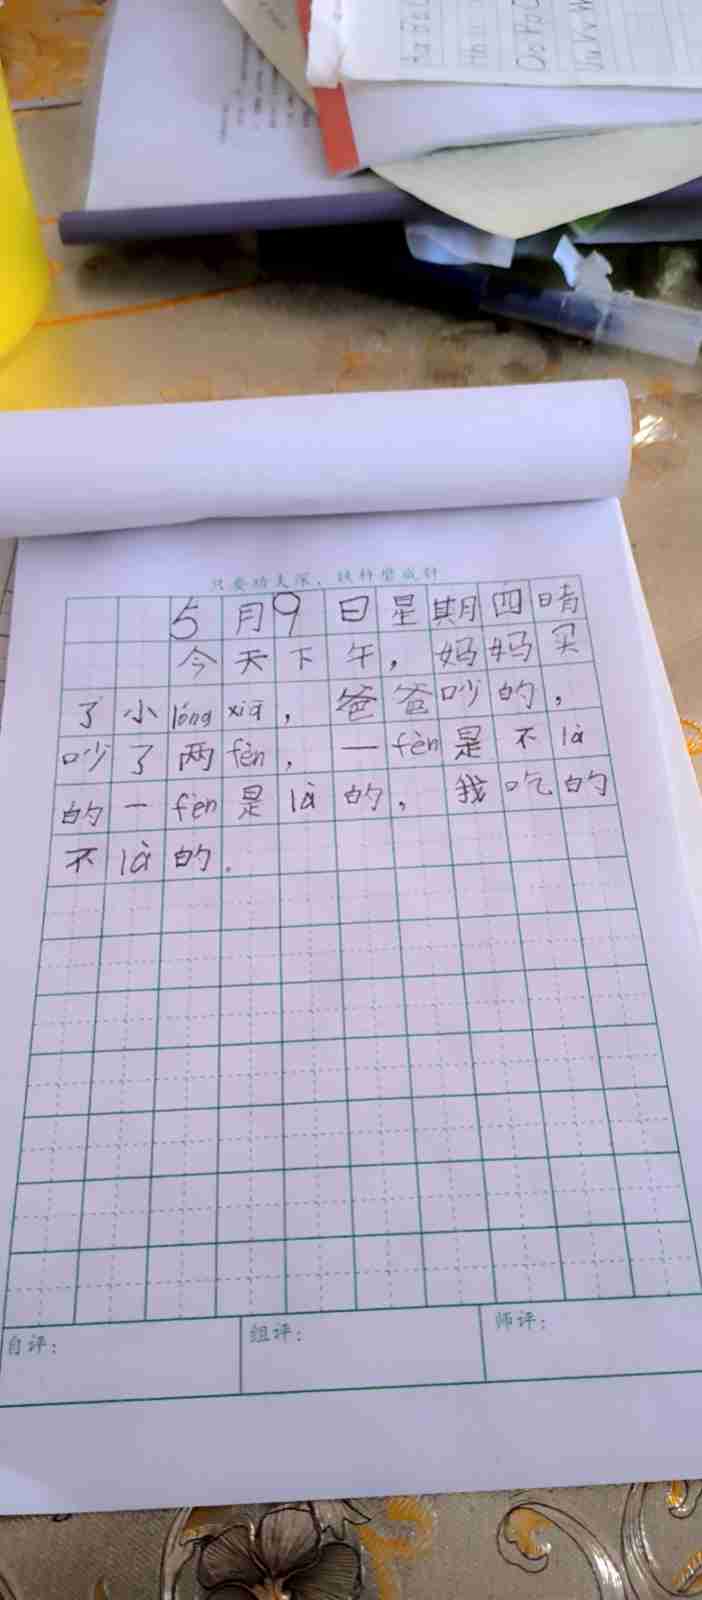 只要功夫深，铁杵磨成针
5月9日星期四晴
今天下午，妈妈买
了小lóng xiā，爸爸吵的，
吵了两fèn，一fèn是不là
的一fèn是là的，我吃的
不là的。
自评：
组评：
师评：